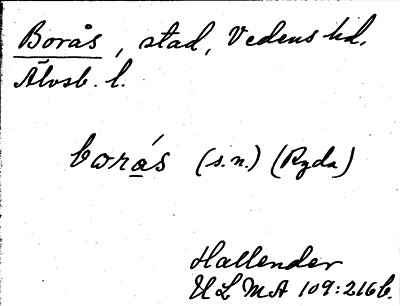 Borås, stad, Vedens hd.
Älvsb. l.
borás (s.n.) (Ryda)
Hallender
ULMA 109:216b.